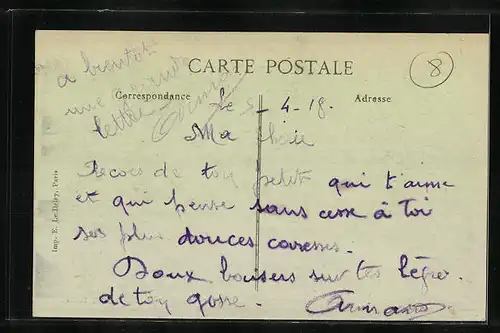 a bientot
une grande
lettre
CARTE POSTALE
8
Correspondance
Adresse
le 5-4-18.
Ma
Recois de ton petit qui t'aime
et qui pense sans cesse à Toi
ses plus douces caresses.
Doux baisers sur tes lèvres.
de ton gosse. Armand
Imp. E. Le Deley, Paris